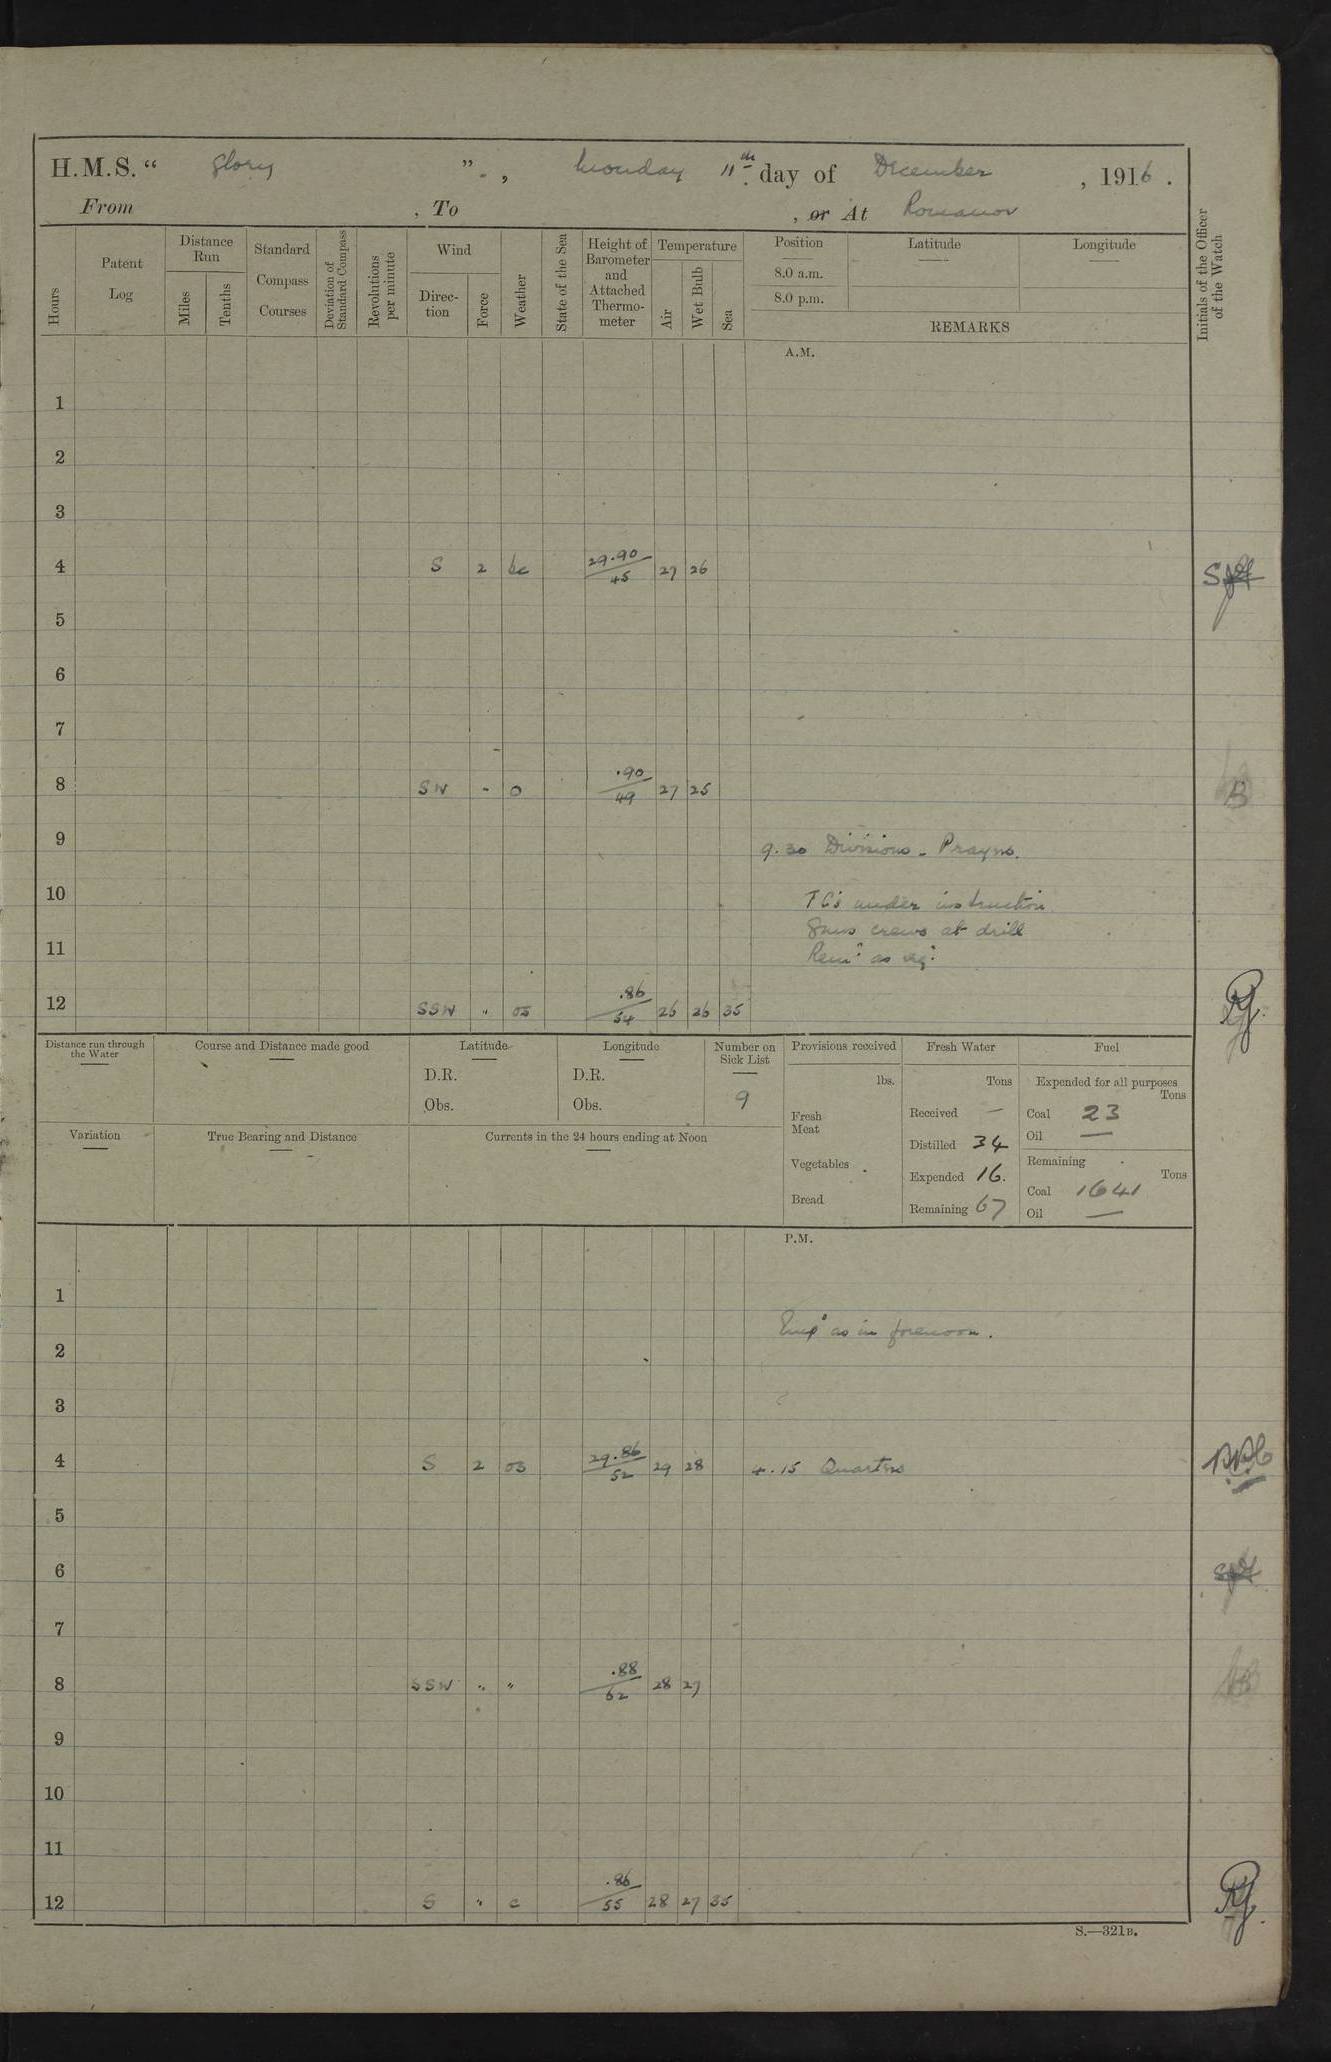 H.M.S. " Glory ", Monday 11th day of December, 1916.
From , To , or At Romanov
Hours
Patent Log
Distance Run
Miles
Tenths
Standard Compass Courses
Deviation of Standard Compass
Revolutions per minute
Wind
Direc-tion
Force
Weather
State of the Sea
Height of Barometer and Attached Thermo-meter
Temperature
Air
Wet Bulb
Sea
Position
8.0 a.m.
8.0 p.m.
Latitude
Longitude
REMARKS
Initials of the Officer of the Watch
A.M.
1
2
3
4 S 2 bc 29.90/45 27 26
5
6
7
8 SW - o .90/49 27 25 B
9
9.30 Divisions - Prayrs.
10 TCs under instruction
Guns crews at drill
11
Remr as req:
12 SSW " os .86/54 26 26 35
Distance run through the Water
Course and Distance made good
Latitude
D.R.
Obs.
Longitude
D.R.
Obs.
Number on Sick List
9
Variation
True Bearing and Distance
Currents in the 24 hours ending at Noon
Provisions received
lbs.
Fresh Meat
Vegetables
Bread
Fresh Water
Tons
Received —
Distilled 34
Expended 16.
Remaining 67
Fuel
Expended for all purposes
Tons
Coal 23
Oil —
Remaining
Tons
Coal 1641
Oil —
P.M.
1
Empd as in forenoon.
2
3
4 S 2 os 29.86/52 29 28 4.15 Quarters
5
6
7
8 SSW " " .88/62 28 27
9
10
11
12 S " c .86/55 28 27 35
S.—321B.